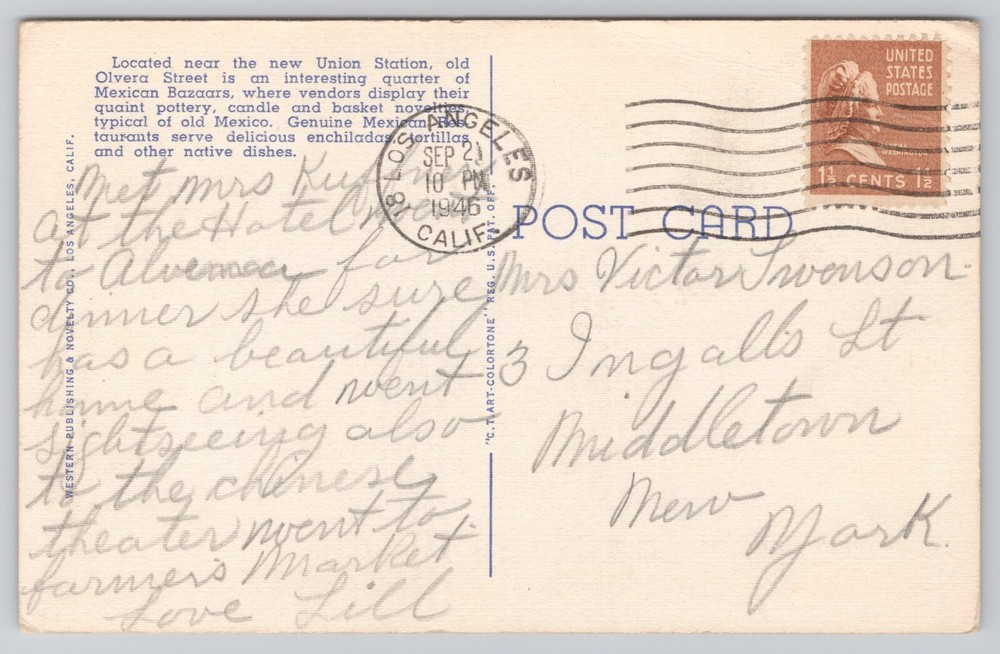 Located near the new Union Station, old
Olvera Street is an interesting quarter of
Mexican Bazaars, where vendors display their
quaint pottery, candle and basket novelties,
typical of old Mexico. Genuine Mexican Res-
taurants serve delicious enchiladas, tortillas
and other native dishes.
Met Mrs
at the Hotel
to for
dinner she sure
has a beautiful
home and went
sightseeing also
to the chinese
theater went to
farmers Market
Love Lill
WESTERN PUBLISHING & NOVELTY CO., LOS ANGELES, CALIF.
"C.T. ART-COLORTONE" REG. U.S. PAT. OFF.
LOS ANGELES
18
SEP 21
10 PM
1946
CALIF.
UNITED
STATES
POSTAGE
WASHINGTON
1½ CENTS 1½
POST CARD
Mrs Victor Swenson
3 Ingalls St
Middletown
New
York